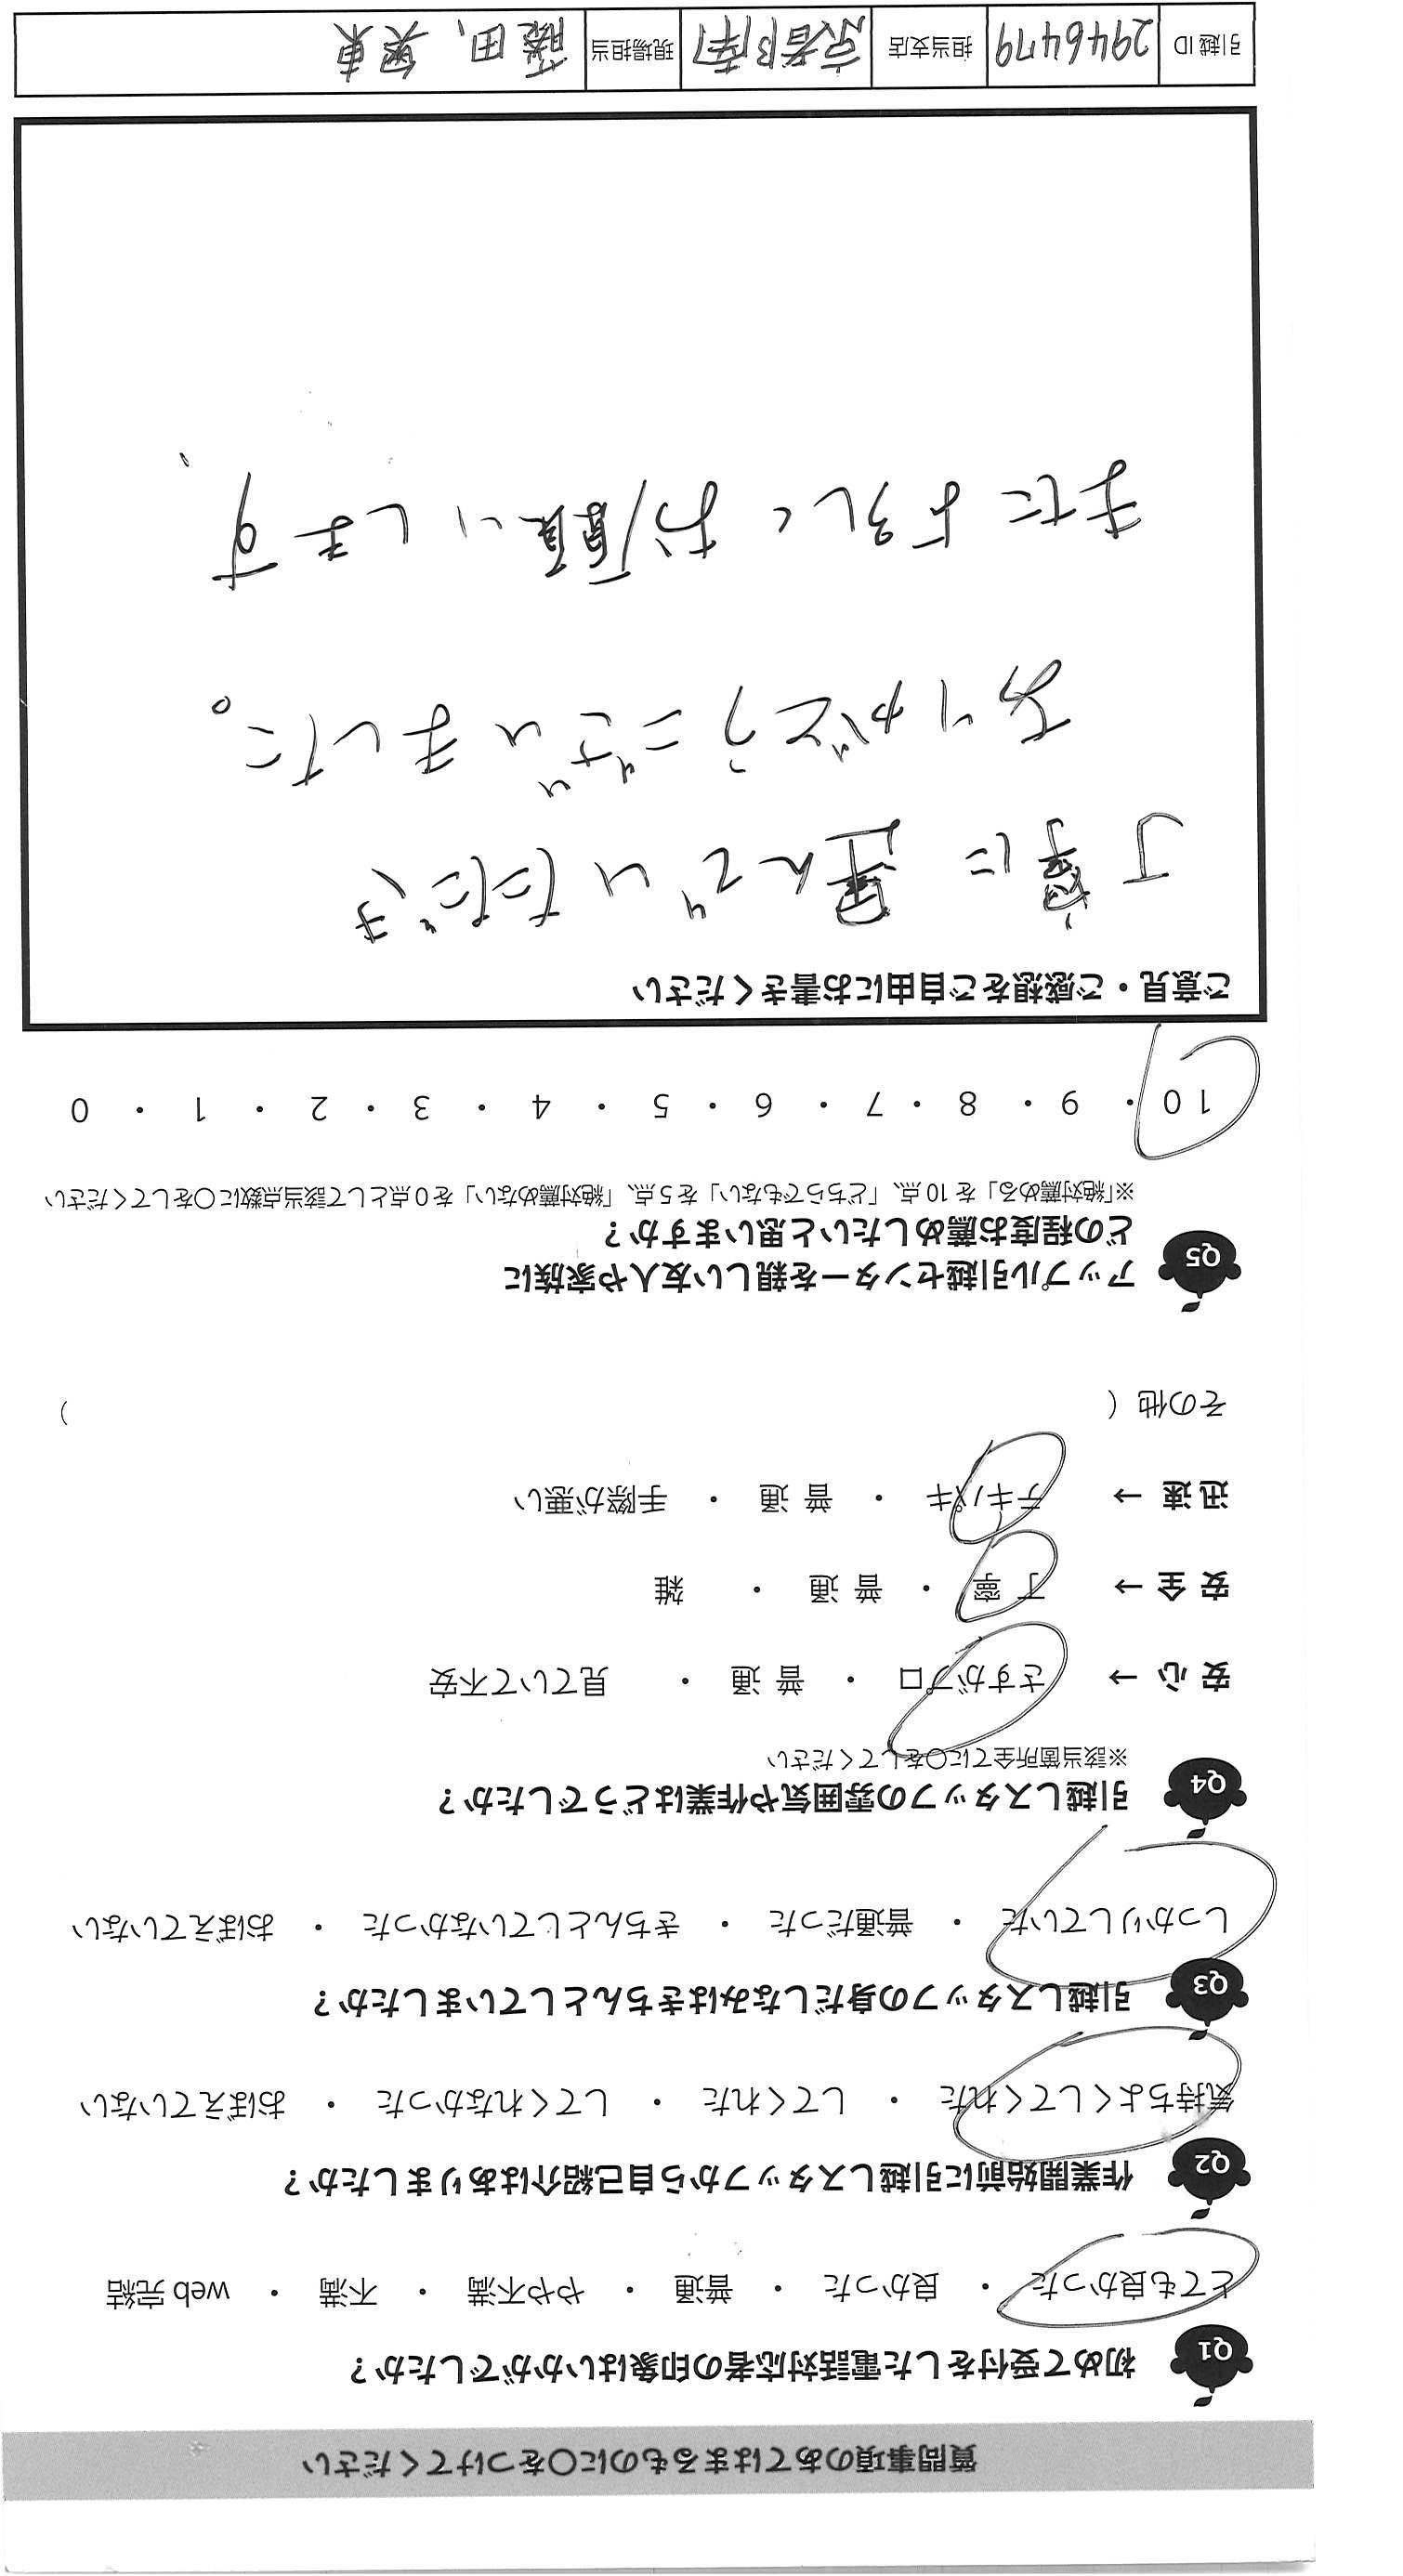 質問事項のあてはまるものに○をつけてください
Q1 初めて受付をした電話対応者の印象はいかがでしたか？
とても良かった ・ 良かった ・ 普通 ・ やや不満 ・ 不満 ・ web 完結
Q2 作業開始前に引越しスタッフから自己紹介はありましたか？
気持ちよくしてくれた ・ してくれた ・ してくれなかった ・ おぼえていない
Q3 引越しスタッフの身だしなみはきちんとしていましたか？
しっかりしていた ・ 普通だった ・ きちんとしていなかった ・ おぼえていない
Q4 引越しスタッフの雰囲気や作業はどうでしたか？
※該当箇所全てに○をしてください
安 心 → さすがプロ ・ 普 通 ・ 見ていて不安
安 全 → 丁 寧 ・ 普 通 ・ 雑
迅 速 → テキパキ ・ 普 通 ・ 手際が悪い
その他（ ）
Q5 アップル引越センターを親しい友人や家族に
どの程度お薦めしたいと思いますか？
※「絶対薦める」を 10 点、「どちらでもない」を 5 点、「絶対薦めない」を 0 点として該当点数に○をしてください
10 ・ 9 ・ 8 ・ 7 ・ 6 ・ 5 ・ 4 ・ 3 ・ 2 ・ 1 ・ 0
ご意見・ご感想をご自由にお書きください
丁寧に 運んでいただき
ありがとうございました。
またよろしくお願いします、
引越 ID 2946479 担当支店 京都南 現場担当 藤田、東